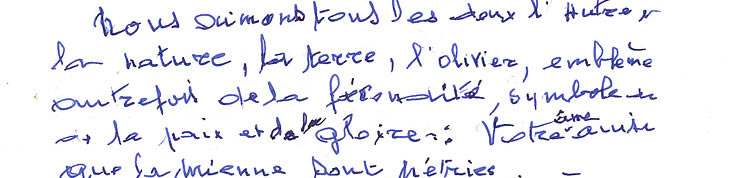 Nous aimons tous les deux l'Autre,
la nature, la terre, l'olivier, emblème
autrefois de la fécondité, symbole
de la paix et de la gloire : Votre âme ainsi
que la mienne sont pétries